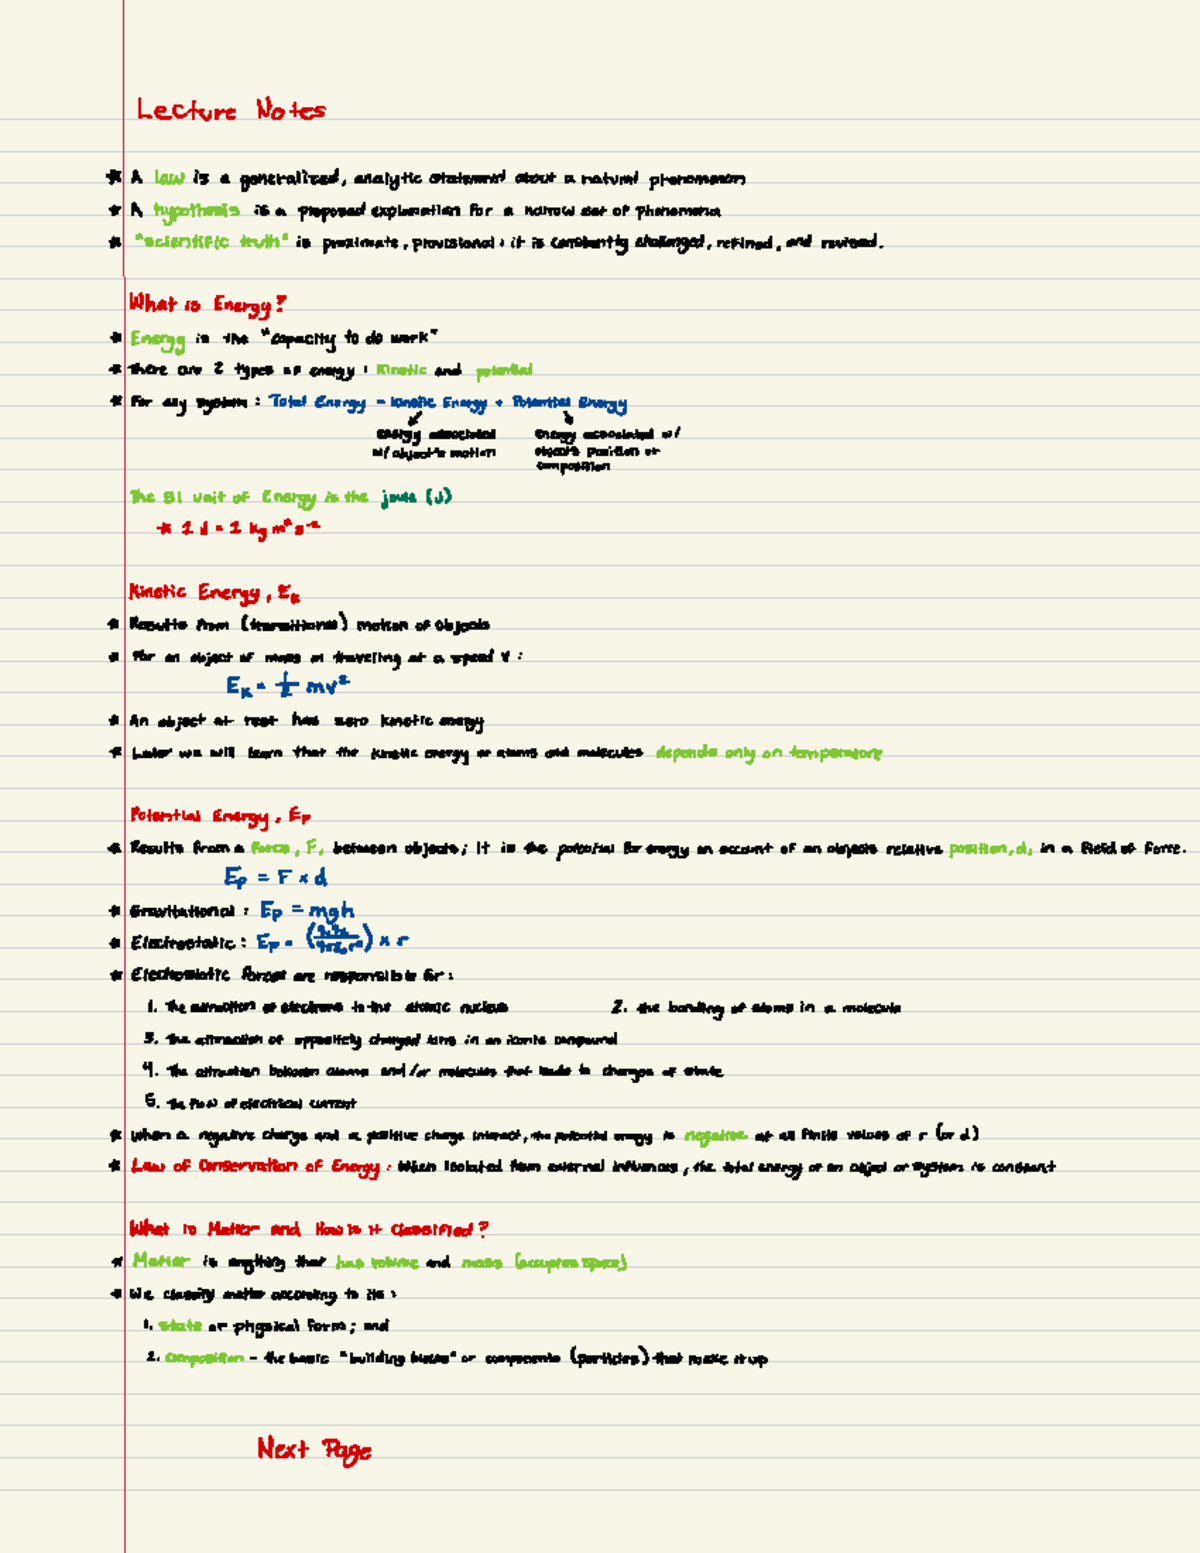 Lecture Notes
* A law is a generalized, analytic statement about a natural phenomenon
* A hypothesis is a proposed explanation for a narrow set of phenomena
* "scientific truth" is proximate, provisional: it is constantly challenged, refined, and revised.
What is Energy?
* Energy is the "capacity to do work"
* There are 2 types of energy: kinetic and potential
* For any system: Total Energy = Kinetic Energy + Potential Energy
Energy associated w/ object's motion
Energy associated w/ object's position or composition
The SI unit of Energy is the joule (J)
* 1 J = 1 kg m² s⁻²
Kinetic Energy, Eₖ
* Results from (transitional) motion of objects
* For an object of mass m traveling at a speed v:
Eₖ = 1/2 mv²
* An object at rest has zero kinetic energy
* Later we will learn that the kinetic energy of atoms and molecules depends only on temperature
Potential Energy, Eₚ
* Results from a force, F, between objects; it is the potential for energy on account of an objects relative position, d, in a field of force.
Eₚ = F × d
* Gravitational: Eₚ = mgh
* Electrostatic: Eₚ = (q₁q₂/4πε₀r²) × r
* Electrostatic forces are responsible for:
1. The attraction of electrons to the atomic nucleus 2. the bonding of atoms in a molecule
3. The attraction of oppositely charged ions in an ionic compound
4. The attraction between atoms and/or molecules that leads to changes of state
5. The flow of electrical current
* When a negative charge and a positive charge interact, the potential energy is negative at all finite values of r (or d)
* Law of Conservation of Energy: When isolated from external influences, the total energy of an object or system is constant
What is Matter and How is it Classified?
* Matter is anything that has volume and mass (occupies space)
* We classify matter according to its:
1. State or physical form; and
2. Composition - the basic "building blocks" or components (particles) that make it up
Next Page